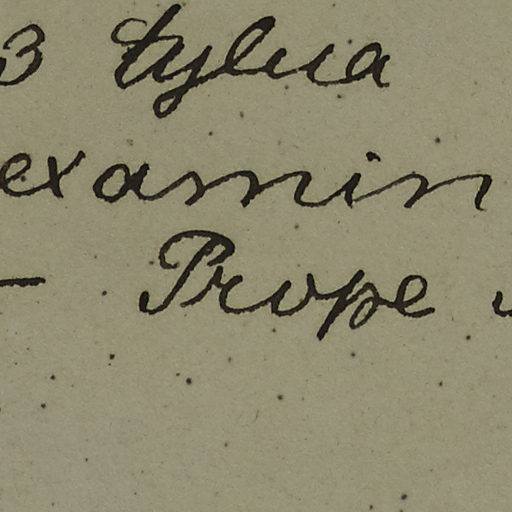 3 Sylua
examin
– Prope